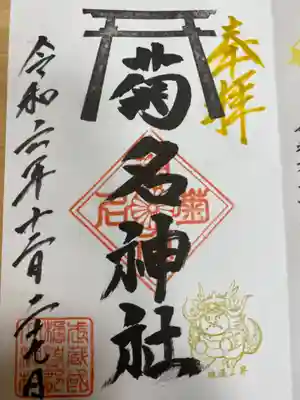 奉拝
菊名神社
令和六年十二月二十九日
菊名
武蔵國
橘樹郡